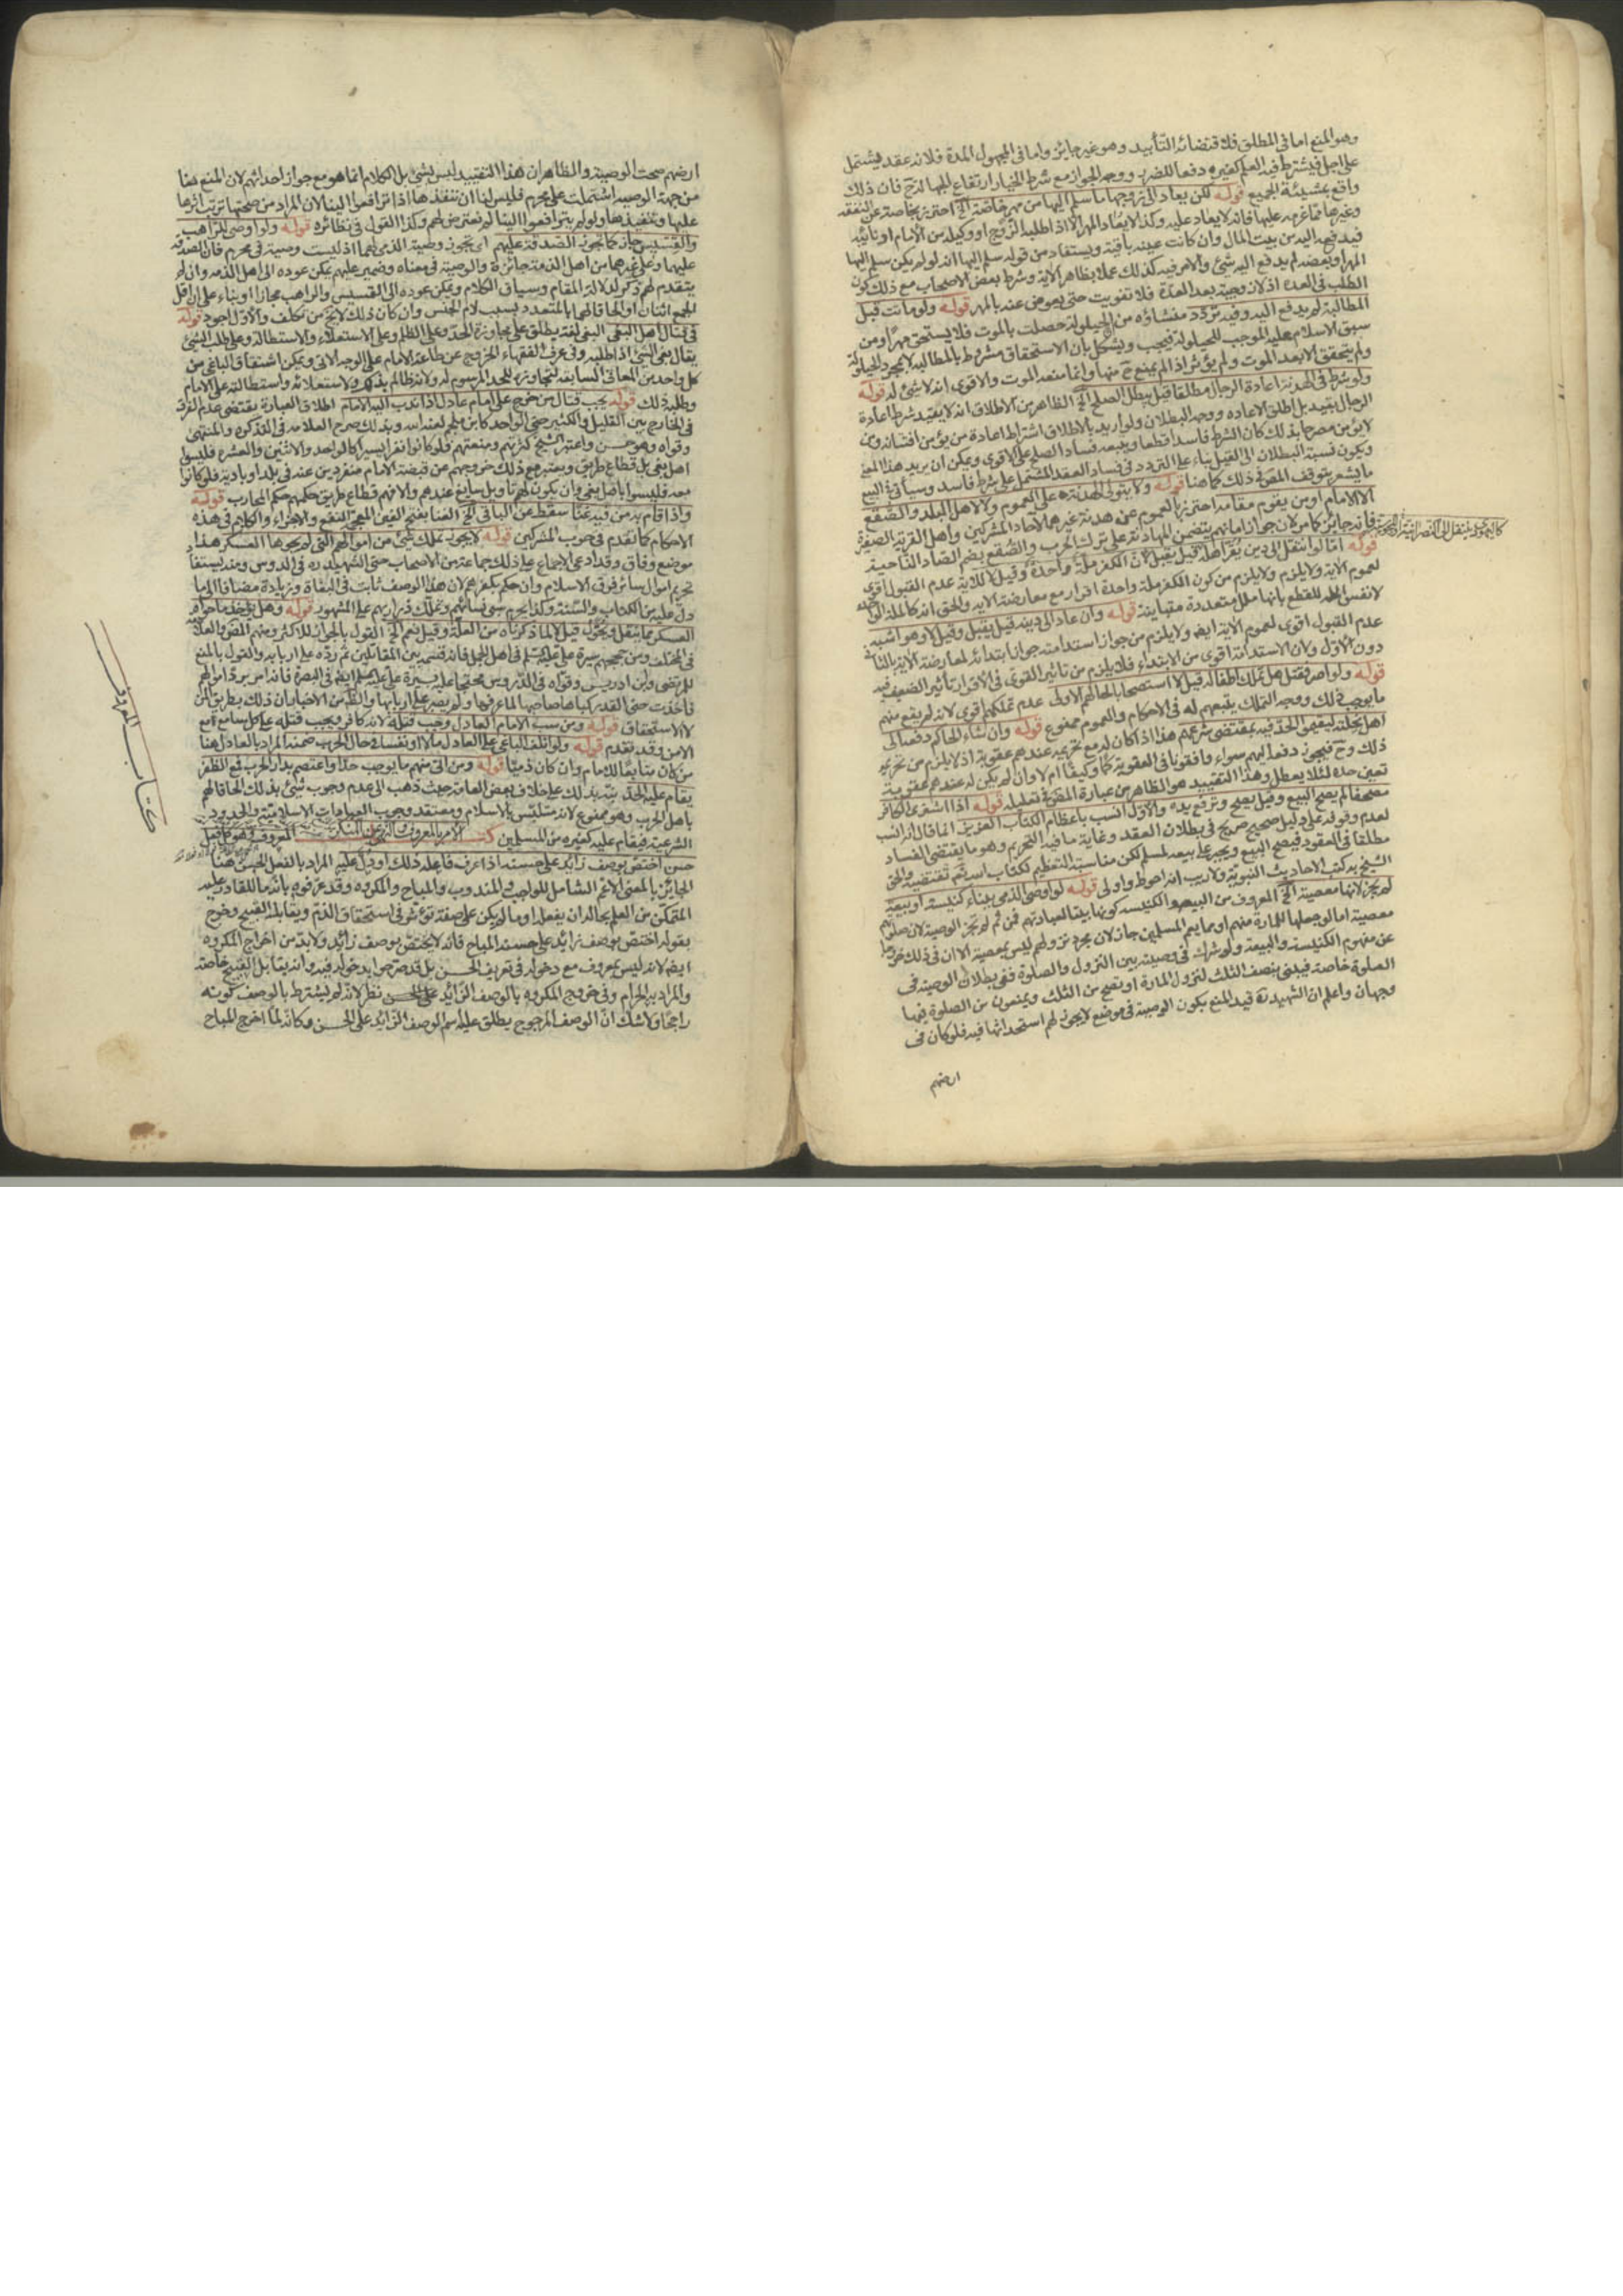 وهو المنع اما في المطلق فلاقتضائه التأبيد وهو غير جايز واما في المجهول المدة فلانه عقد يشتمل
على اجل فيشترط فيه العلم كغيره دفعا للضرر ووجه الجواز مع شرط الخيار ارتفاع الجهالة ح فان ذلك
واقع بمشيئة الجميع قوله لكن يعاد الى زوجها ما سلم اليها من مهر خاصة الخ احترز بخاصة عن النفقة
وغيرها مما غرمه عليها فانه لا يعاد عليه وكذا لا يعاد المهر الا اذا طلبه الزوج او وكيله من الامام او نائبه
فيدفعه اليه من بيت المال وان كانت عينه باقية ويستفاد من قوله سلم اليها انه لو لم يكن سلم اليها
المهر او بعضه لم يدفع اليه شئ والامر فيه كذلك عملا بظاهر الاية وشرط بعض الاصحاب مع ذلك كون
الطلب في العدة اذ لا زوجية بعد العدة فلا تفويت حتى يعوض عنه بالمهر قوله ولو ماتت قبل
المطالبة لم يدفع اليه وفيه تردد منشاؤه من الحيلولة حصلت بالموت فلا يستحق مهرا ومن
سبق الاسلام عليه الموجب للحيلولة فيجب ويشكل بان الاستحقاق مشروط بالمطالبة لا بمجرد الحيلولة
ولم يتحقق الا بعد الموت ولم يؤثر اذ لم يمنع ح منها وانما منعه الموت والاقوى انه لا شئ له قوله
ولو شرط في الهدنة اعادة الرجال مطلقا قيل يبطل الصلح الخ الظاهر من الاطلاق انه لا يقيد شرط اعادة
الرجال بقيد بل اطلق الاعاده ووجه البطلان ولو اريد بالاطلاق اشتراط اعادة من يؤمن افتتانه ومن
لا يؤمن مصرحا بذلك كان الشرط فاسدا قطعا ويتبعه فساد الصلح على الاقوى ويمكن ان يريد هذا المعنى
ويكون نسبة البطلان الى القيل بناء على التردد في فساد العقد المشتمل على شرط فاسد وسيأتي في البيع
ما يشعر بتوقف المص في ذلك كما هنا قوله ولا يتولى الهدنة على العموم ولا لاهل البلد والصقع
الا الامام او من يقوم مقامه احترز بالعموم عن هدنة غيرهما لآحاد المشركين واهل القرية الصغيرة
فانه جايز كما مر لان جواز امانهم يتضمن المهادنة على ترك الحرب والصقع بضم الصاد الناحية
قوله اما لو انتقل الى دين يقر اهله قيل يقبل لان الكفر ملة واحدة وقيل لا للاية عدم القبول اقوى
كاليهودي ينتقل الى النصرانية او المجوسية
لعموم الاية ولا يلزم ولا يلزم من كون الكفر ملة واحدة اقراره مع معارضة الاية والحق انه كالملة الواحدة
لا نفس الملة للقطع بانها ملل متعددة متباينة قوله وان عاد الى دينه قيل يقبل وقيل لا وهو اشبه
عدم القبول اقوى لعموم الاية ايض ولا يلزم من جواز استدامته جواز ابتدائه لمعارضة الاية بالثاني
دون الاول ولان الاستدامة اقوى من الابتداء فلا يلزم من تاثير القوى في الاقرار تأثير الضعيف فيه
قوله ولو اصر فقتل هل تملك اطفاله قيل لا استصحابا لحالهم الاولى عدم تملكهم اقوى لانه لم يقع منهم
ما يوجب ذلك ووجه التملك يتبعهم له في الاحكام والعموم ممنوع قوله وان شاء الحاكم دفعه الى
اهل نحلته ليقيموا الحد فيه بمقتضى شرعهم هذا اذا كان له مع تحريمه عندهم عقوبة اذ لا يلزم من تحريم
ذلك وح فيجوز دفعه اليهم سواء وافقونا في العقوبة كما وكيفا ام لا وان لم يكن له عندهم عقوبة
تعين حده لئلا يعطل وهذا التقييد هو الظاهر من عبارة المص في تعليله قوله اذا اشترى الكافر
مصحفا لم يصح البيع وقيل يصح وترفع يده والاول انسب باعظام الكتاب العزيز انما قال انه انسب
لعدم وقوفه على دليل صحيح صريح في بطلان العقد وغاية ما فيه التحريم وهو ما يقتضى الفساد
مطلقا في العقود فيصح البيع ويجبر على بيعه لمسلم لكن مناسبة التعظيم لكتاب الله تعم تقتضيه والحق
الشيخ به كتب الاحاديث النبوية ولا ريب انه احوط واولى قوله لو اوصى الذمي ببناء كنيسة او بيعة
لم يجز لانها معصية الخ المعروف من البيعه والكنيسه كونها بيتا لعبادتهم فمن ثم لم تجز الوصية لان صلوتهم
معصية اما لو جعلها للمارة منهم او مما يعم المسلمين جاز لان مجرد نزولهم ليس بمعصية الا ان في ذلك خروجا
عن مفهوم الكنيسة والبيعة ولو شرك في وصيته بين النزول والصلوة ففي بطلان الوصية في
الصلوة خاصة فيبنى بنصف الثلث لنزول المارة او تصح من الثلث ويمنعون من الصلوة فيها
وجهان واعلم ان الشهيد ره قيد المنع بكون الوصية في موضع لا يجوز لهم استحداثها فيه فلو كان في
ارضهم
ارضهم صحت الوصية والظاهر ان هذا التقييد ليس بشئ بل الكلام انما هو مع جواز احداثهم لان المنع هنا
من جهة الوصية اشتملت على محرم فليس لنا ان ننفذها اذا ترافعوا الينا لان المراد من صحتها ترتب اثرها
عليها وتنفيذها ولو لم يترافعوا الينا لم نعترض لهم وكذا القول في نظائره قوله ولو اوصى للراهب
والقسيس جاز كما تجوز الصدقة عليهم اى تجوز وصية الذمي لهما اذ ليست وصية في محرم فان الصدقة
عليهما وعلى غيرهما من اهل الذمة جائزة والوصية في معناه وضمير عليهم يمكن عوده الى اهل الذمة وان لم
يتقدم لهم ذكر لدلالة المقام وسياق الكلام ويمكن عوده الى القسيس والراهب مجازا او بناء على ان اقل
الجمع اثنان او الحاقا لهما بالمتعدد بسبب لام الجنس وان كان ذلك لا يخ من تكلف والاول اجود قوله
في قتال اهل البغى البغى لغة يطلق على مجاوزة الحد وعلى الظلم وعلى الاستعلاء والاستطالة وعلى طلب الشئ
يقال بغى الشئ اذا طلبه وفى عرف الفقهاء الخروج عن طاعة الامام على الوجه الاتى ويمكن اشتقاق الباغى من
كل واحد من المعانى السابقة لتجاوزه للحد المرسوم له ولانه ظالم بذلك ولاستعلائه واستطالته على الامام
وطلبه ذلك قوله يجب قتال من خرج على امام عادل اذا ندب اليه الامام اطلاق العبارة يقتضى عدم الفرق
في الخارج بين القليل والكثير حتى الواحد كابن ملجم لعنه الله وبذلك صرح العلامه في التذكره والمنتهى
وقواه وهو حسن واعتبر الشيخ كثرتهم ومنعتهم فلو كانوا نفرا يسيرا كالواحد والاثنين والعشره فليسوا
اهل بغى بل قطاع طريق ويعتبر مع ذلك خروجهم عن قبضة الامام منفردين عنه في بلد او بادية فلو كانوا
معه فليسوا باهل بغى وان يكون لهم تأويل سايغ عندهم والا فهم قطاع طريق حكمهم حكم المحارب قوله
واذا قام به من فيه غنا سقط عن الباقى الخ الغنا بفتح الغين المعجمة النفع والاجزاء والكلام في هذه
الاحكام كما تقدم في حرب المشركين قوله لا يجوز تملك شئ من اموالهم التى لم يحوها العسكر هذا
موضع وفاق وقد ادعى الاجماع على ذلك جماعة من الاصحاب حتى الشهيد ره في الدروس ومنه يستفاد
تحريم اموال سائر فرق الاسلام وان حكم بكفرهم لان هذا الوصف ثابت في البغاة وزيادة مضافا الى ما
دل عليه من الكتاب والسنة وكذا يحرم سبى نسائهم وتملك ذراريهم على المشهور قوله وهل يؤخذ ما حواه
العسكر مما ينقل ويحول قيل لا لما ذكرناه من العلة وقيل نعم الخ القول بالجواز للاكثر ومنهم المص والعلامة
في المختلف ومن حججهم سيرة على عليه السلم في اهل الجمل فانه قسمه بين المقاتلين ثم رده على اربابه والقول بالمنع
للمرتضى وابن ادريس وقواه في الدروس محتجا عليه بسيرة على عليه السلم ايض في البصرة فانه امر برد اموالهم
فاخذت حتى القدر كفاها صاحبها لما عرفها ولم يصبر على اربابها والظ من الاخبار ان ذلك بطريق المن
لا الاستحقاق قوله ومن سب الامام العادل وجب قتله لانه كافر ويجب قتله على كل سامع مع
الامن وقد تقدم قوله ولو اتلف الباغى على العادل مالا او نفسا في حال الحرب ضمنه المراد بالعادل هنا
من كان متابعا للامام وان كان ذميا قوله ومن اتى منهم ما يوجب حدا واعتصم بدار الحرب فمع الظفر
يقام عليه الحد نبه بذلك على خلاف بعض العامة حيث ذهب الى عدم وجوب شئ بذلك الحاقا لهم
باهل الحرب وهو ممنوع لانه متلبس بالاسلام ومعتقد وجوب العبادات الاسلامية والحدود
الشرعية فيقام عليه كغيره من المسلمين كتاب الامر بالمعروف والنهى عن المنكر المعروف هو كل فعل
حسن اختص بوصف زائد على حسنه اذا عرف فاعله ذلك او دل عليه المراد بالفعل الحسن هنا
الجايز بالمعنى الاعم الشامل للواجب والمندوب والمباح والمكروه وقد عرفوه بانه ما للقادر عليه
المتمكن من العلم بحاله ان يفعله او ما لم يكن على صفة تؤثر في استحقاق الذم ويقابله القبيح وخرج
بقوله اختص بوصف زائد على حسنه المباح فانه لا يختص بوصف زائد ولا بد من اخراج المكروه
ايض لانه ليس بمعروف مع دخوله في تعريف الحسن بل قد صرحوا بدخوله فيه وانه يقابل القبيح خاصة
والمراد به الحرام وفى خروج المكروه بالوصف الزائد على الحسن نظر لانه لم يشترط بالوصف كونه
راجحا ولا شك ان الوصف المرجوح يطلق عليه اسم الوصف الزائد على الحسن وكانه لما اخرج المباح
كتاب المعروف